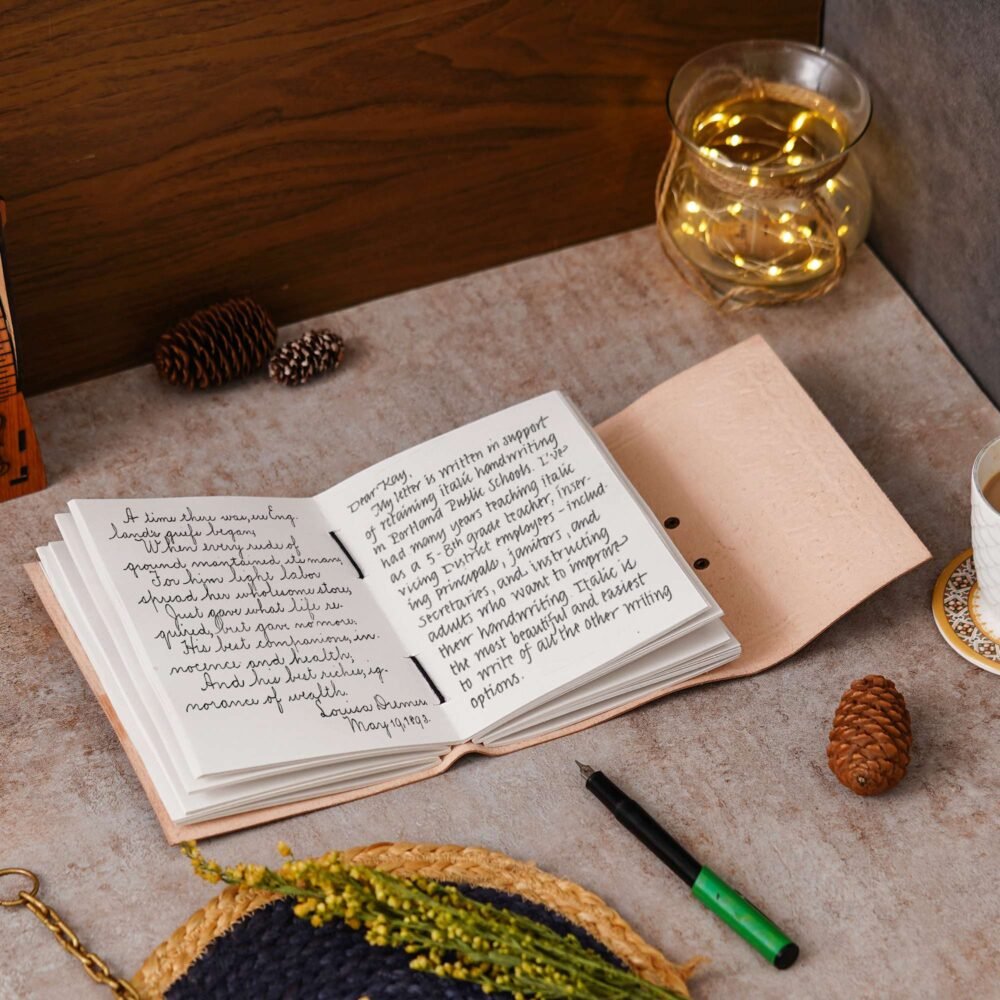 A time there was, ere Eng-
land's griefs began,
When every rood of
ground maintained its man;
For him light labor
spread her wholesome store,
Just gave what life re-
quired, but gave no more:
His best companions, in-
nocence and health;
And his best riches, ig-
norance of wealth.
Louisa
May 19, 1893.
Dear Kay,
My letter is written in support
of retaining italic handwriting
in Portland Public Schools. I've
had many years teaching italic
as a 5-8th grade teacher, inser-
vicing District employers - includ-
ing principals, janitors, and
secretaries, and instructing
adults who want to improve
their handwriting. Italic is
the most beautiful and easiest
to write of all the other writing
options.